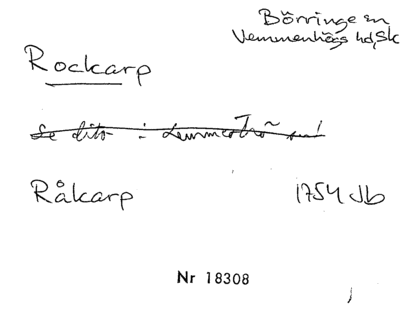 Börringe sn
Vemmenhögs hd, Sk
Rockarp
Se dito i Lemmeströ sn!
Råkarp 1754 Jb
Nr 18308